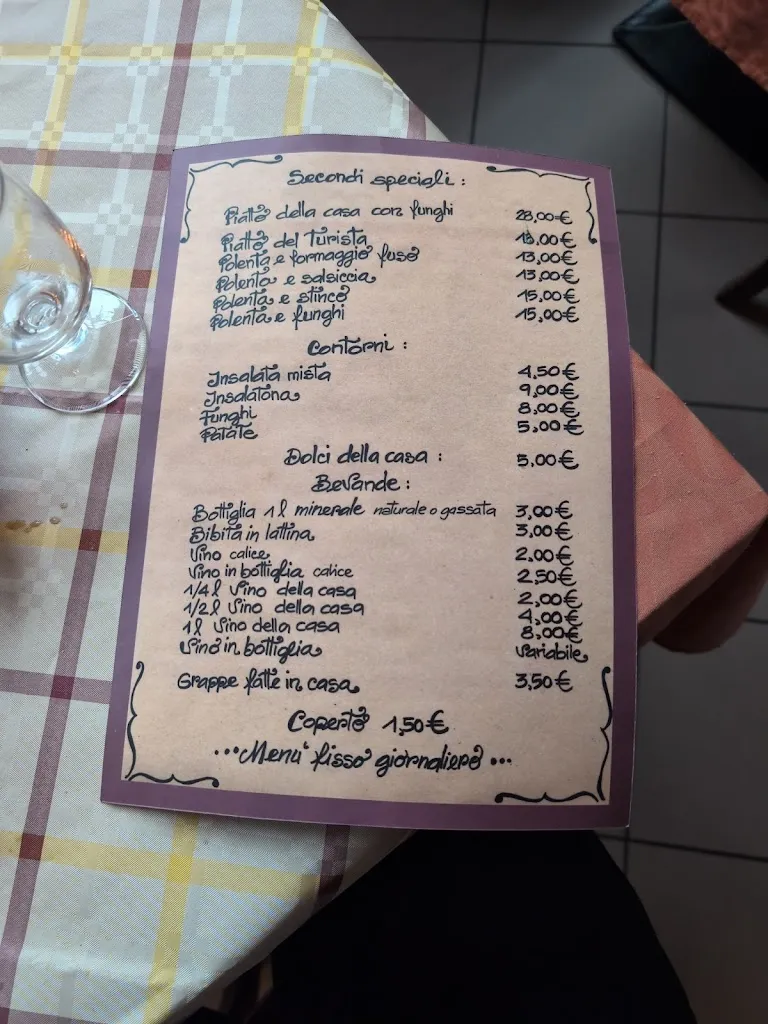 Secondi speciali :
Piatto della casa con funghi 28,00€
Piatto del Turista 18,00€
Polenta e formaggio fuso 13,00€
Polenta e salsiccia 13,00€
Polenta e stinco 15,00€
Polenta e funghi 15,00€
Contorni :
Insalata mista 4,50€
Insalatona 9,00€
Funghi 8,00€
Patate 5,00€
Dolci della casa : 5,00€
Bevande :
Bottiglia 1l minerale naturale o gassata 3,00€
Bibita in lattina 3,00€
Vino calice 2,00€
Vino in bottiglia calice 2,50€
1/4 l Vino della casa 2,00€
1/2 l Vino della casa 4,00€
1 l Vino della casa 8,00€
Vino in bottiglia Variabile
Grappe fatte in casa 3,50€
Coperto 1,50€
...Menu' fisso giornaliero...